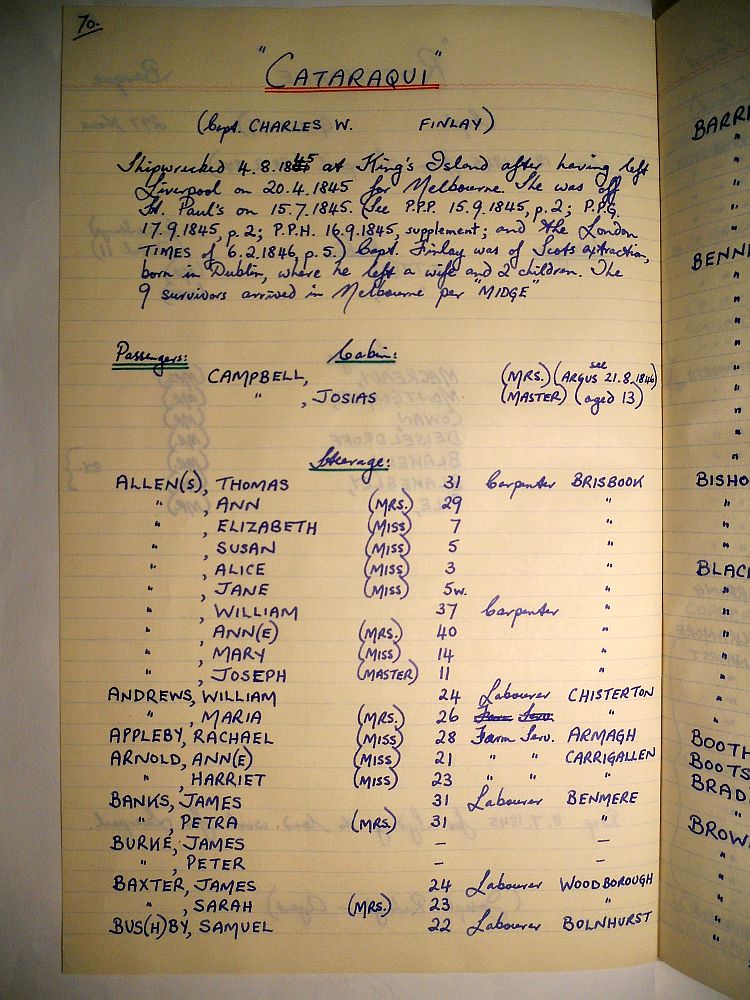 70.
"CATARAQUI"
(Capt. CHARLES W. FINLAY)
Shipwrecked 4.8.1845 at King's Island after having left
Liverpool on 20.4.1845 for Melbourne. She was off
St. Paul's on 15.7.1845. (See P.P.P. 15.9.1845, p.2; P.P.G.
17.9.1845, p.2; P.P.H. 16.9.1845, supplement; and the London
TIMES of 6.2.1846, p.5.) Capt. Finlay was of Scots extraction,
born in Dublin, where he left a wife and 2 children. The
9 survivors arrived in Melbourne per "MIDGE"
Passengers: Cabin:
CAMPBELL, (MRS.) (see ARGUS 21.8.1846)
" , JOSIAS (MASTER) (aged 13)
Steerage:
ALLEN(S), THOMAS 31 Carpenter BRISBOOK
" , ANN (MRS.) 29 "
" , ELIZABETH (MISS) 7 "
" , SUSAN (MISS) 5 "
" , ALICE (MISS) 3 "
" , JANE (MISS) 5w. "
" , WILLIAM 37 Carpenter "
" , ANN(E) (MRS.) 40 "
" , MARY (MISS) 14 "
" , JOSEPH (MASTER) 11 "
ANDREWS, WILLIAM 24 Labourer CHISTERTON
" , MARIA (MRS.) 26 Farm Serv. "
APPLEBY, RACHAEL (MISS) 28 Farm Serv. ARMAGH
ARNOLD, ANN(E) (MISS) 21 " " CARRIGALLEN
" , HARRIET (MISS) 23 " " "
BANKS, JAMES 31 Labourer BENMERE
" , PETRA (MRS.) 31 "
BURKE, JAMES – –
" , PETER – –
BAXTER, JAMES 24 Labourer WOODBOROUGH
" , SARAH (MRS.) 23 "
BUS(H)BY, SAMUEL 22 Labourer BOLNHURST
BARR
BENN
BISHO
BLAC
BOOTH
BOOTS
BRAD
BROW